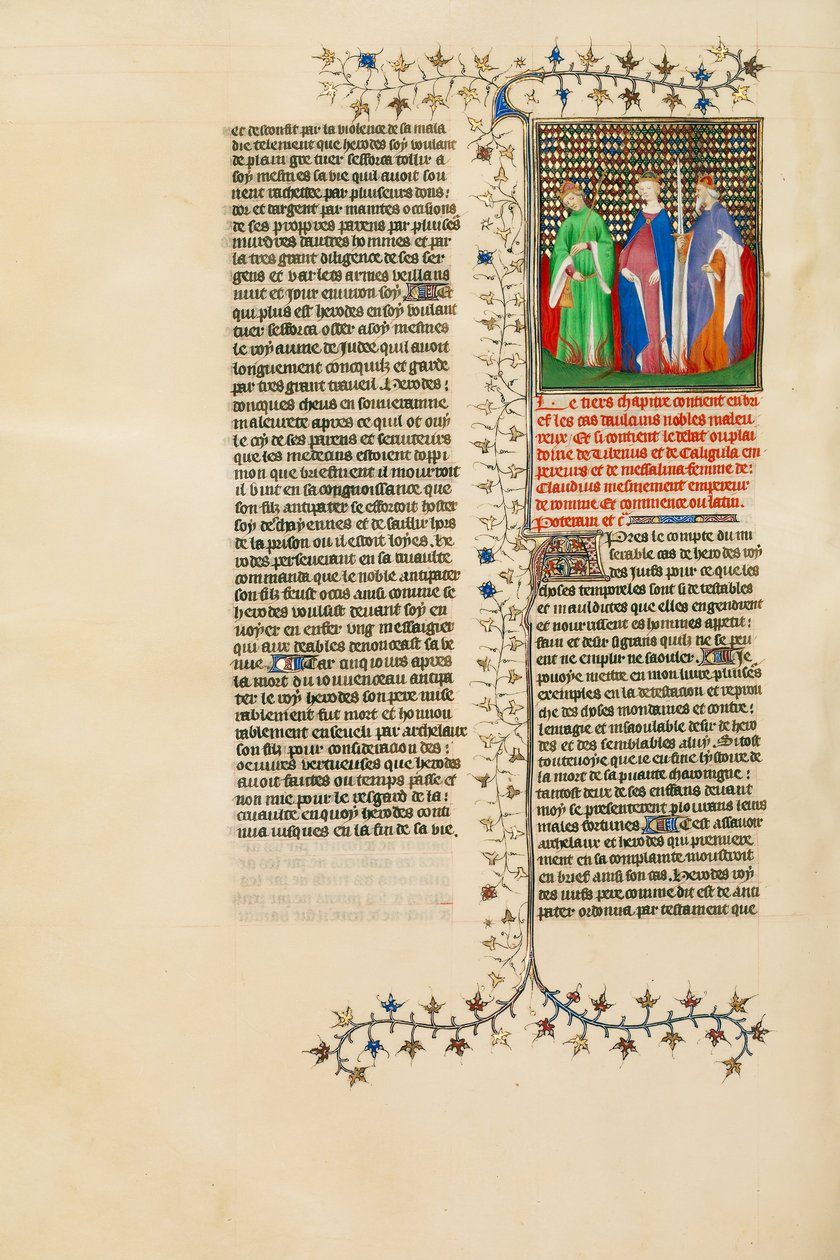 et desconfit par la violence de sa mala
die telement que herodes soy voulant
de plain gre tuer sefforca tollir a
soy mesmes sa vie quil avoit sou
uent rachettee par pluiseurs dons:
dor et dargent par maintes occisions
de ses propres parens par pluiseᵘˢ
murdres dautres hommes et par
la tres grant diligence de ses ser
gens et varlets armes veillans
nuit et jour environ soy. Et
qui plus est herodes en soy voulant
tuer sefforca oster a soy mesmes
le royaume de Judee quil avoit
longuement concquiz et garde
par tres grant travail. Herodes:
doncques cheus en souveraine
maleurete apres ce quil ot ouy
le cry de ses parens et serviteurs
que les medecins estoient doppi
nion que briefment il mourroit
il vint en sa congnoissance que
son filz antipater se efforcoit hoster
soy de chayennes et de saillir hors
de la prison ou il estoit loyes. He
rodes perseverant en sa cruaulte
commanda que le noble antipater
son filz feust occis ainsi comme se
herodes voulsist devant soy en
voyer en enfer ung messaigier
qui aux deables denonceast sa ve
nue. Car cinq iours apres
la mort du iouvenceau antipa
ter le roy herodes son pere mise
rablement fut mort et honnou
rablement enseveli par archelaux
son filz pour consideracion des:
oeuvres vertueuses que herodes
avoit faittes ou temps passe et
non mie pour le resgard de la:
cruaulte en quoy herodes conti
nua iusques en la fin de sa vie.
Le tiers chapitre contient en bri
ef les cas daulcuns nobles maleu
reux Et si contient le debat ou plai
doirie de Tiberius et de Caligula em
pereurs et de messalina femme de:
Claudius mesmement empereur
de romme. Et commence ou latin.
Poteram et cᵃ.
Apres le compte du mi
serable cas de herodes roy
des Juifs pour ce que les
choses temporeles sont si detestables
et mauldictes que elles engendrent
et nourrissent es hommes appetit:
faim et desir si grans quilz ne se peu
ent ne emplir ne saouler. Je
povoye mettre en mon livre pluiseᵘˢ
exemples en la detestacion et reprou
che des choses mondaines et contre:
lenragie et insaoulable desir de hero
des et des semblables a luy. Si tost
toutevoye que ie eu fine lystoire de
la mort de sa puante charoingne:
tantost deux de ses enffans devant
moy se presenterent plourans leurs
males fortunes. Cest assavoir
archelaux et herodes qui premiere
ment en sa complainte moustroit
en brief ainsi son cas. Herodes roy
des iuifs pere comme dit est de anti
pater ordonna par testament que